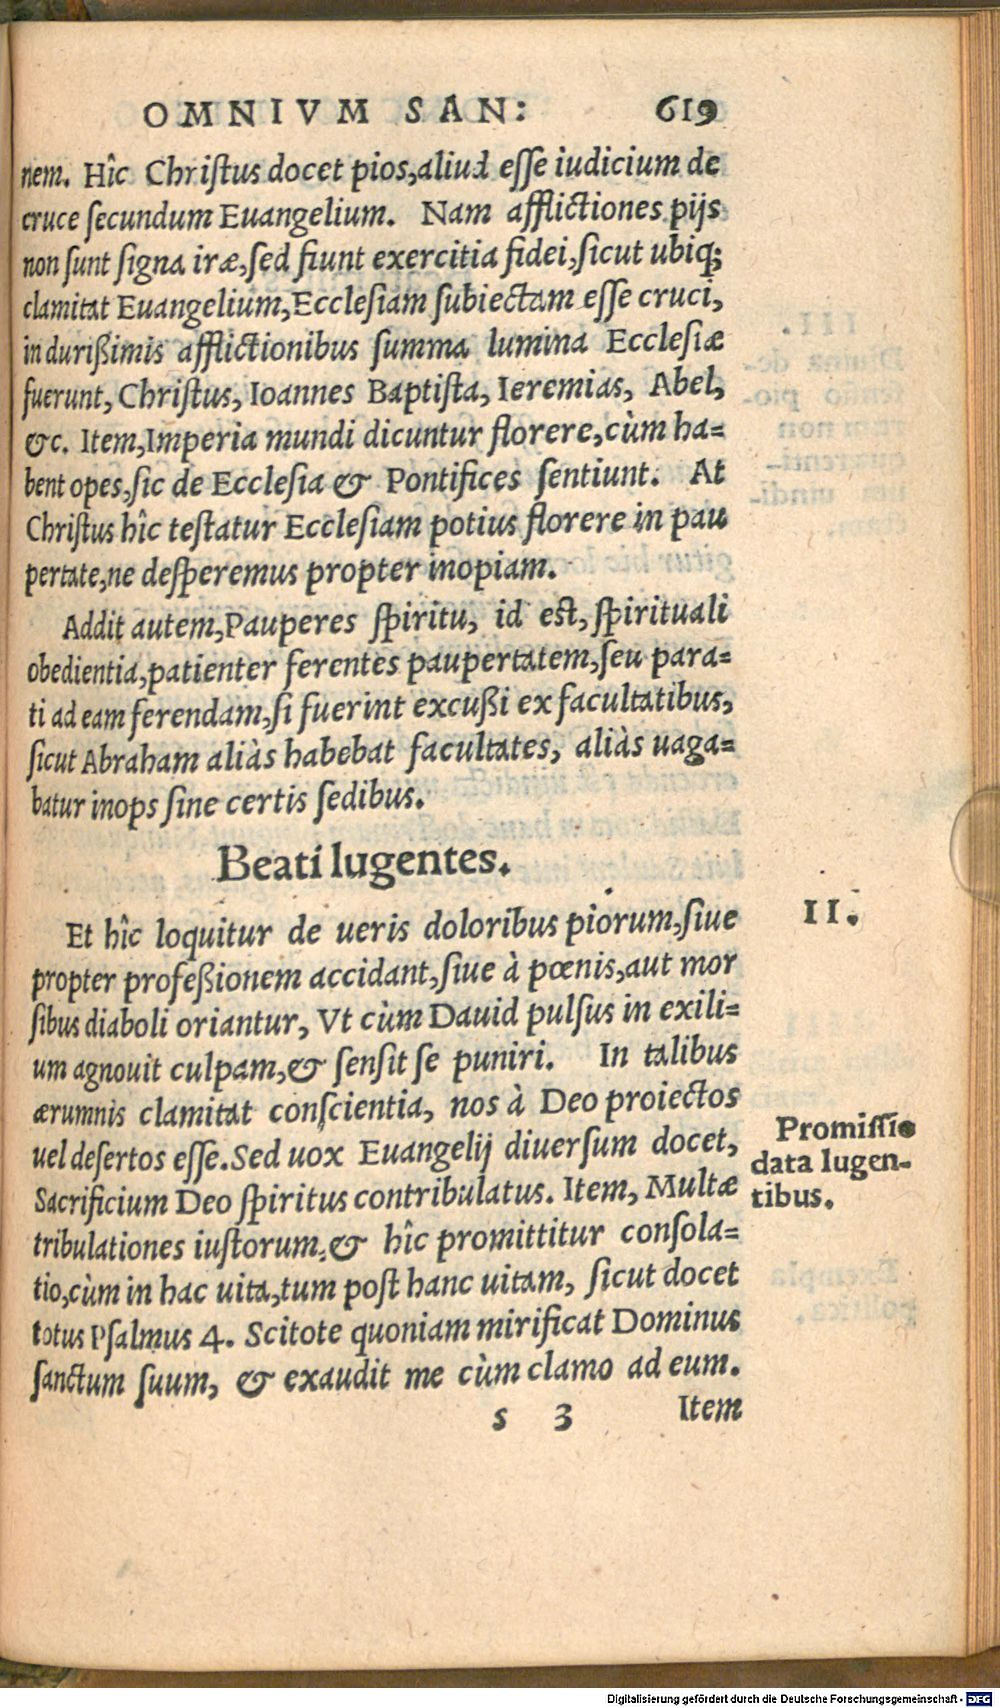 OMNIVM SAN: 619
nem. Hîc Christus docet pios, aliud esse iudicium de
cruce secundum Euangelium. Nam afflictiones pijs
non sunt signa iræ, sed fiunt exercitia fidei, sicut ubiq;
clamitat Euangelium, Ecclesiam subiectam esse cruci,
in durißimis afflictionibus summa lumina Ecclesiæ
fuerunt, Christus, Ioannes Baptista, Ieremias, Abel,
&c. Item, Imperia mundi dicuntur florere, cùm ha=
bent opes, sic de Ecclesia & Pontifices sentiunt. At
Christus hîc testatur Ecclesiam potius florere in pau
pertate, ne desperemus propter inopiam.
Addit autem, Pauperes spiritu, id est, spirituali
obedientia, patienter ferentes paupertatem, seu para=
ti ad eam ferendam, si fuerint excußi ex facultatibus,
sicut Abraham aliàs habebat facultates, aliàs uaga=
batur inops sine certis sedibus.
Beati lugentes.
Et hîc loquitur de ueris doloribus piorum, siue
II.
propter profeßionem accidant, siue à pœnis, aut mor
sibus diaboli oriantur, Vt cùm Dauid pulsus in exili=
um agnouit culpam, & sensit se puniri. In talibus
ærumnis clamitat conscientia, nos à Deo proiectos
uel desertos esse. Sed uox Euangelij diuersum docet,
Sacrificium Deo spiritus contribulatus. Item, Multæ
tribulationes iustorum, & hîc promittitur consola=
tio, cùm in hac uita, tum post hanc uitam, sicut docet
totus Psalmus 4. Scitote quoniam mirificat Dominus
sanctum suum, & exaudit me cùm clamo ad eum.
Promissio
data lugen-
tibus.
s 3 Item
Digitalisierung gefördert durch die Deutsche Forschungsgemeinschaft - DFG